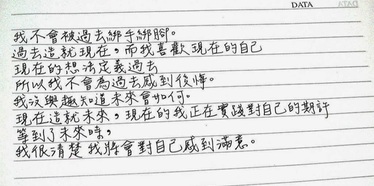 DATA
我不會被過去綁手綁腳。
過去造就現在，而我喜歡現在的自己
現在的想法定義過去
所以我不會為過去感到後悔。
我沒興趣知道未來會如何。
現在造就未來，現在的我正在實踐對自己的期許
等到了未來時，
我很清楚我將會對自己感到滿意。